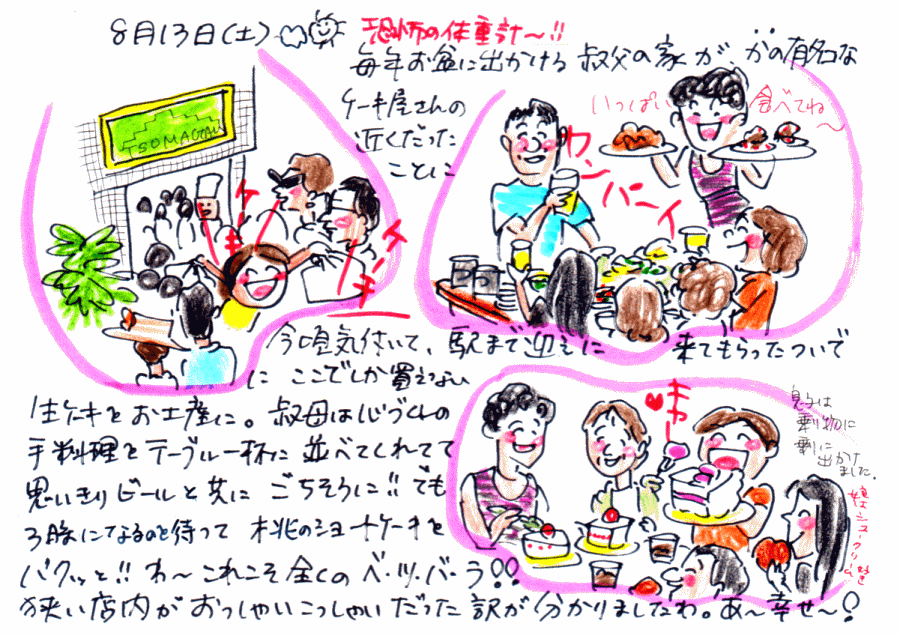 8月13日(土)
恐怖の体重計〜!!
毎年お盆に出かける叔父の家が、かの有名な
ケーキ屋さんの
近くだった
ことに
ケーキ
ケーキ
いっぱい 食べてね〜
カンパーイ
今頃気付いて、駅まで迎えに 来てもらったついで
に ここでしか買えない
生ケーキをお土産に。叔母は心づくしの
手料理をテーブル一杯に並べてくれてて
思いきりビールと共に ごちそうに!!でも
になるのを待って 桃のショートケーキを
パクッと!! わ〜これこそ全くの ベ・ツ・バ・ラ!!
狭い店内が おっしゃいこっしゃいだった訳が 分かりましたわ。あ〜幸せ〜!
息子は
乗り物に
乗りに
出かけ
ました。
シュークリーム